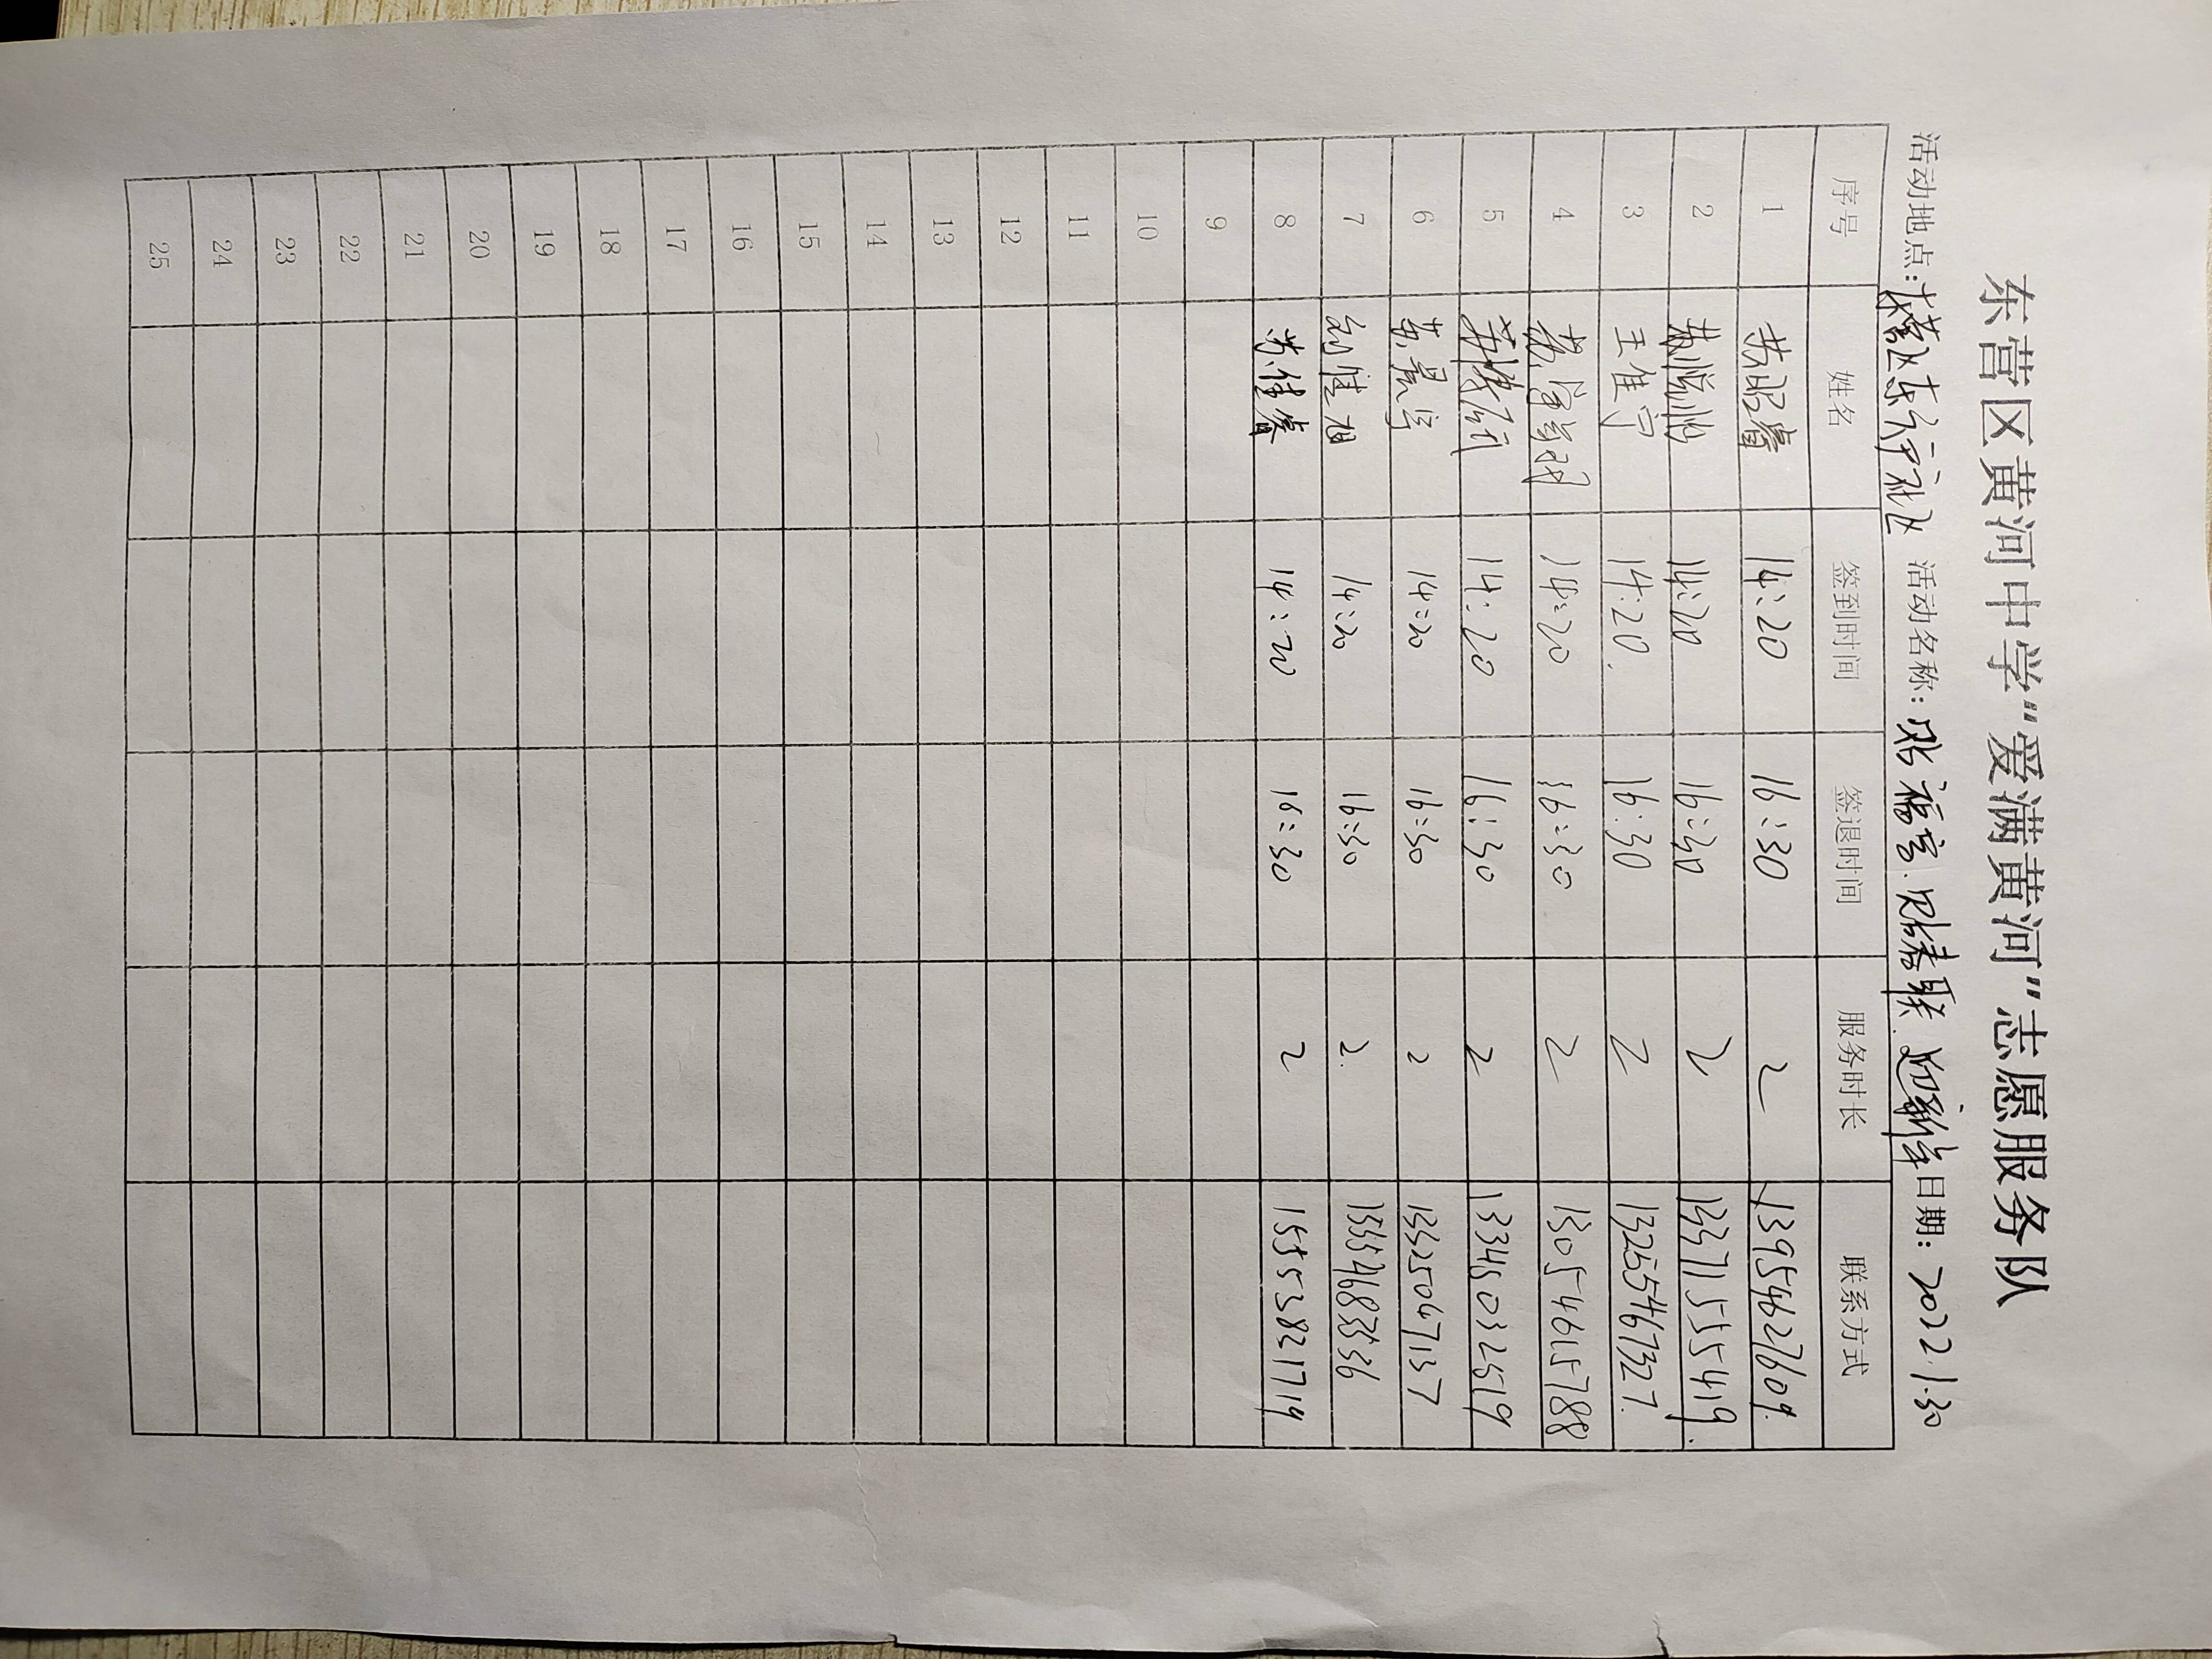 东营区黄河中学“爱满黄河”志愿服务队
活动地点：东营区东行社区 活动名称：贴福字、贴春联、迎新年 日期：2022.1.30
序号 姓名 签到时间 签退时间 服务时长 联系方式
1 14:20 16:30 2 13954627609
2 14:20 16:30 2 13371555419
3 王维宁 14:20 16:30 2 13255467327
4 14:20 16:30 2 13054615788
5 14:20 16:30 2 13345032519
6 苏晨宇 14:20 16:30 2 13325067137
7 14:20 16:30 2 15554683536
8 14:20 16:30 2 15553821719
9
10
11
12
13
14
15
16
17
18
19
20
21
22
23
24
25